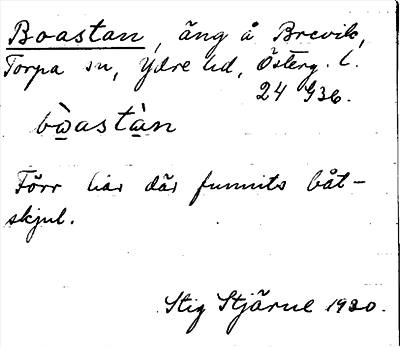 Boastan, äng å Brevik,
Torpa sn, Ydre hd, Österg. l.
24 G36.
bὼastàn
Förr har där funnits båt-
skjul.
Stig Stjärne 1930.